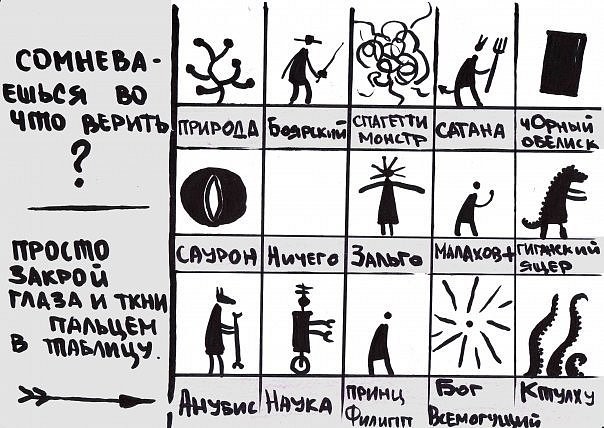 СОМНЕВА-
ЕШЬСЯ ВО
ЧТО ВЕРИТЬ
?
ПРОСТО
ЗАКРОЙ
ГЛАЗА И ТКНИ
ПАЛЬЦЕМ
В ТАБЛИЦУ.
ПРИРОДА
БОЯРСКИЙ
СПАГЕТТИ
МОНСТР
САТАНА
ЧОРНЫЙ
ОБЕЛИСК
САУРОН
НИЧЕГО
ЗАЛЬГО
МАЛАХОВ+
ГИГАНСКИЙ
ЯЩЕР
АНУБИС
НАУКА
ПРИНЦ
ФИЛИПП
БОГ
ВСЕМОГУЩИЙ
КТУЛХУ